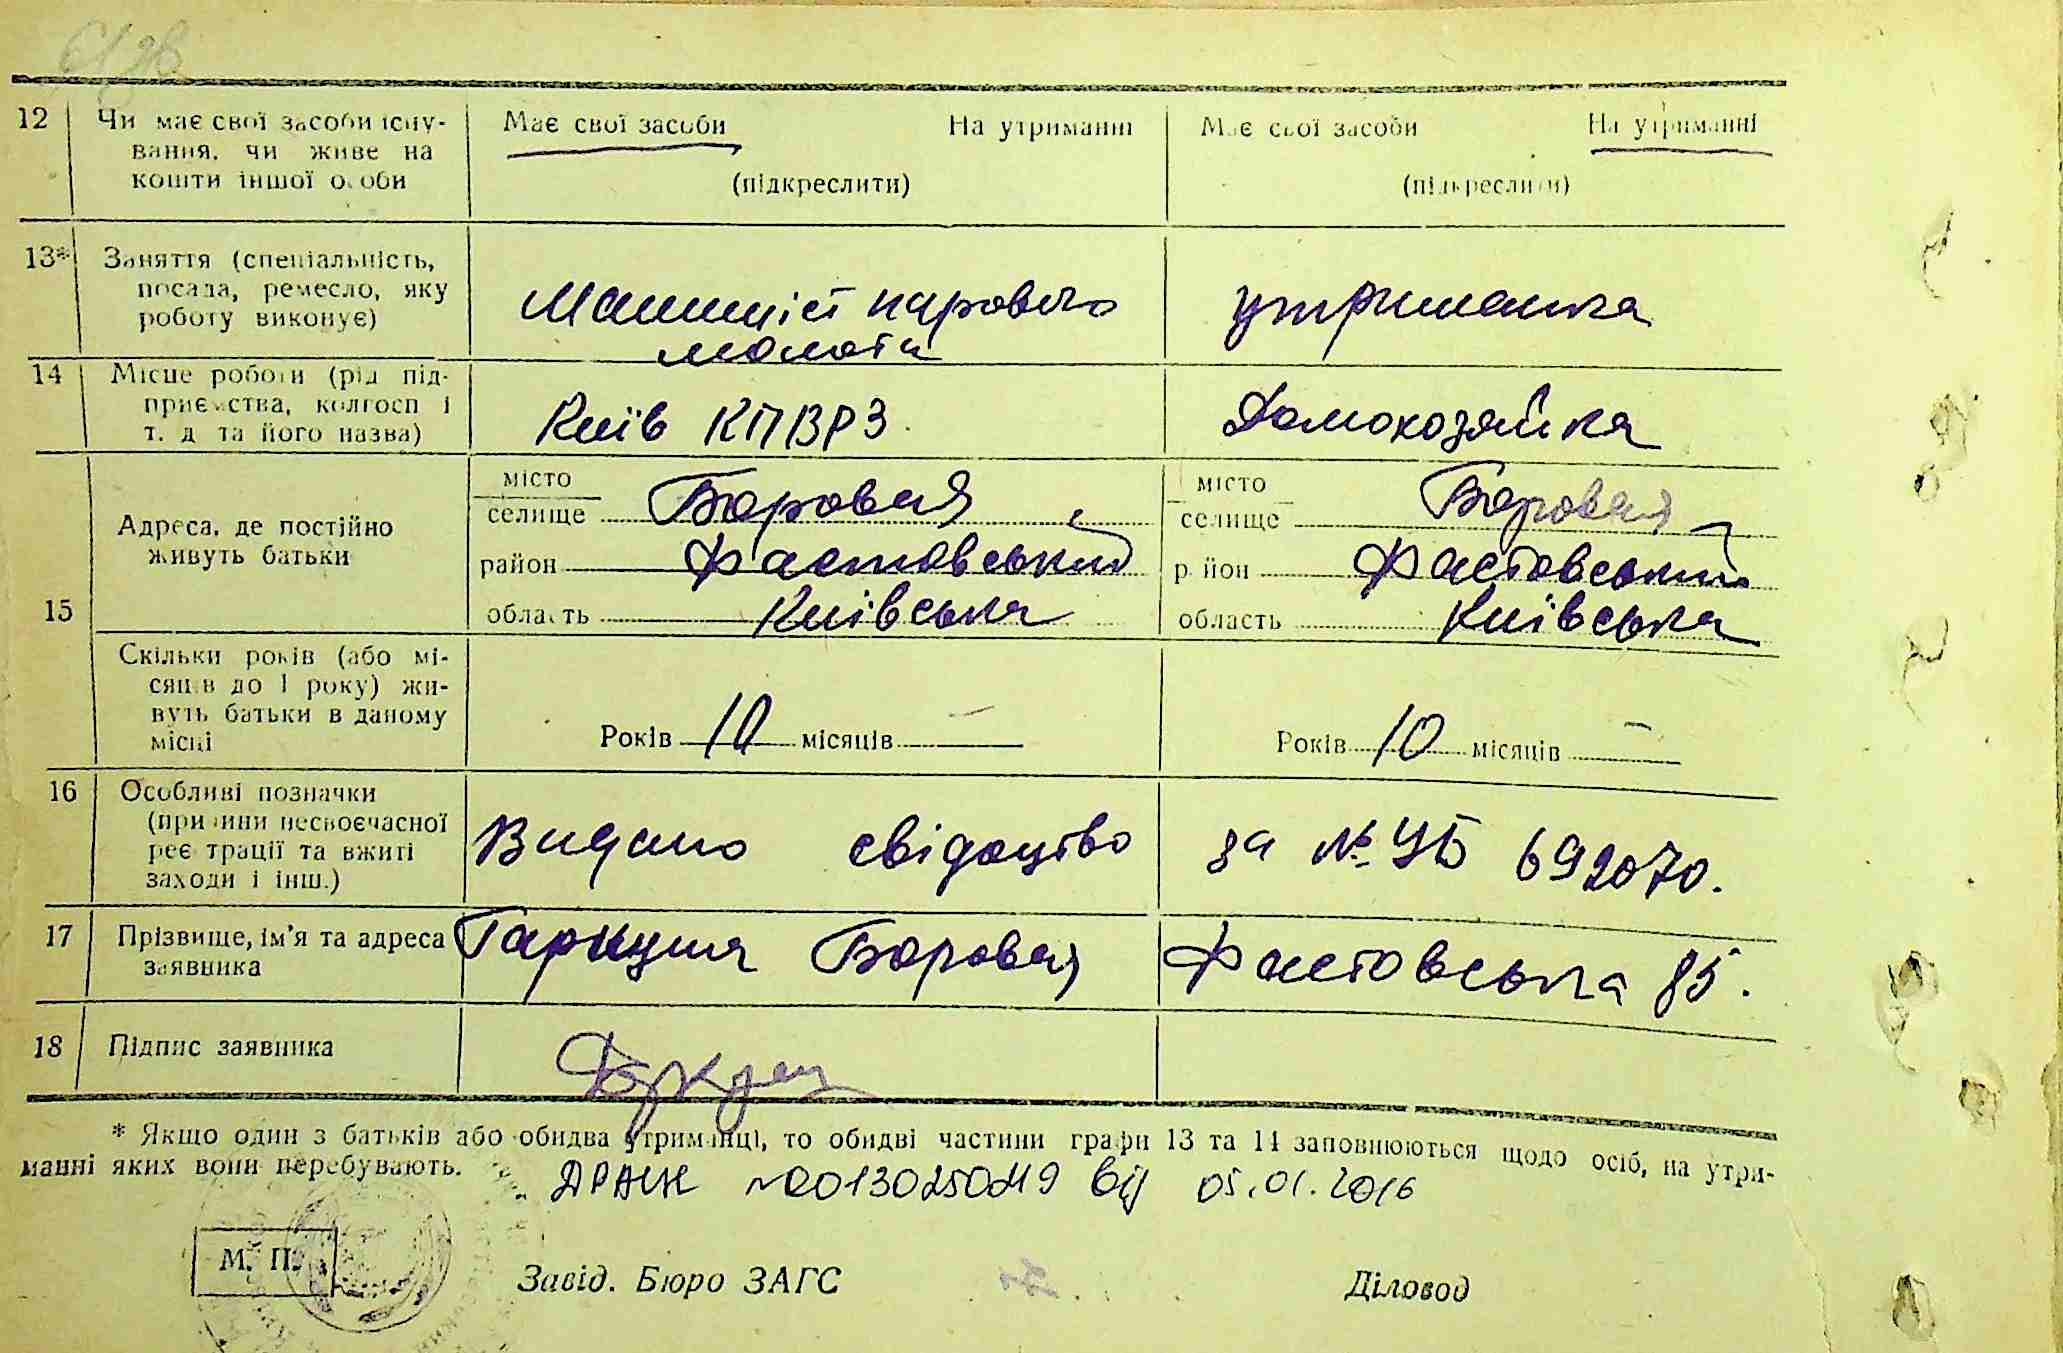 12 Чи має свої засоби існу-
вання, чи живе на
кошти іншої особи
Має свої засоби На утриманні
(підкреслити)
Має свої засоби На утриманні
(підкреслити)
13* Заняття (спеціальність,
посада, ремесло, яку
роботу виконує)
Машиніст парового
молота
утриманка
14 Місце роботи (рід під-
приємства, колгосп і
т. д та його назва)
Київ КПВРЗ.
Домохозяйка
15 Адреса, де постійно
живуть батьки
місто
селище Боровая
район Фастовський
область Київська
місто
селище Боровая
район Фастовський
область Київська
Скільки років (або мі-
сяців до 1 року) жи-
вуть батьки в даному
місці
Років 10 місяців —
Років 10 місяців —
16 Особливі позначки
(причини несвоєчасної
реєстрації та вжиті
заходи і інш.)
Видано свідоцтво за № УБ 692070.
17 Прізвище, ім'я та адреса
заявника
Гаркуша Боровая Фастовська 85.
18 Підпис заявника
* Якщо один з батьків або обидва утриманці, то обидві частини графи 13 та 14 заповнюються щодо осіб, на утри-
манні яких вони перебувають.
від 05.01.2016
М. П.
Завід. Бюро ЗАГС Діловод